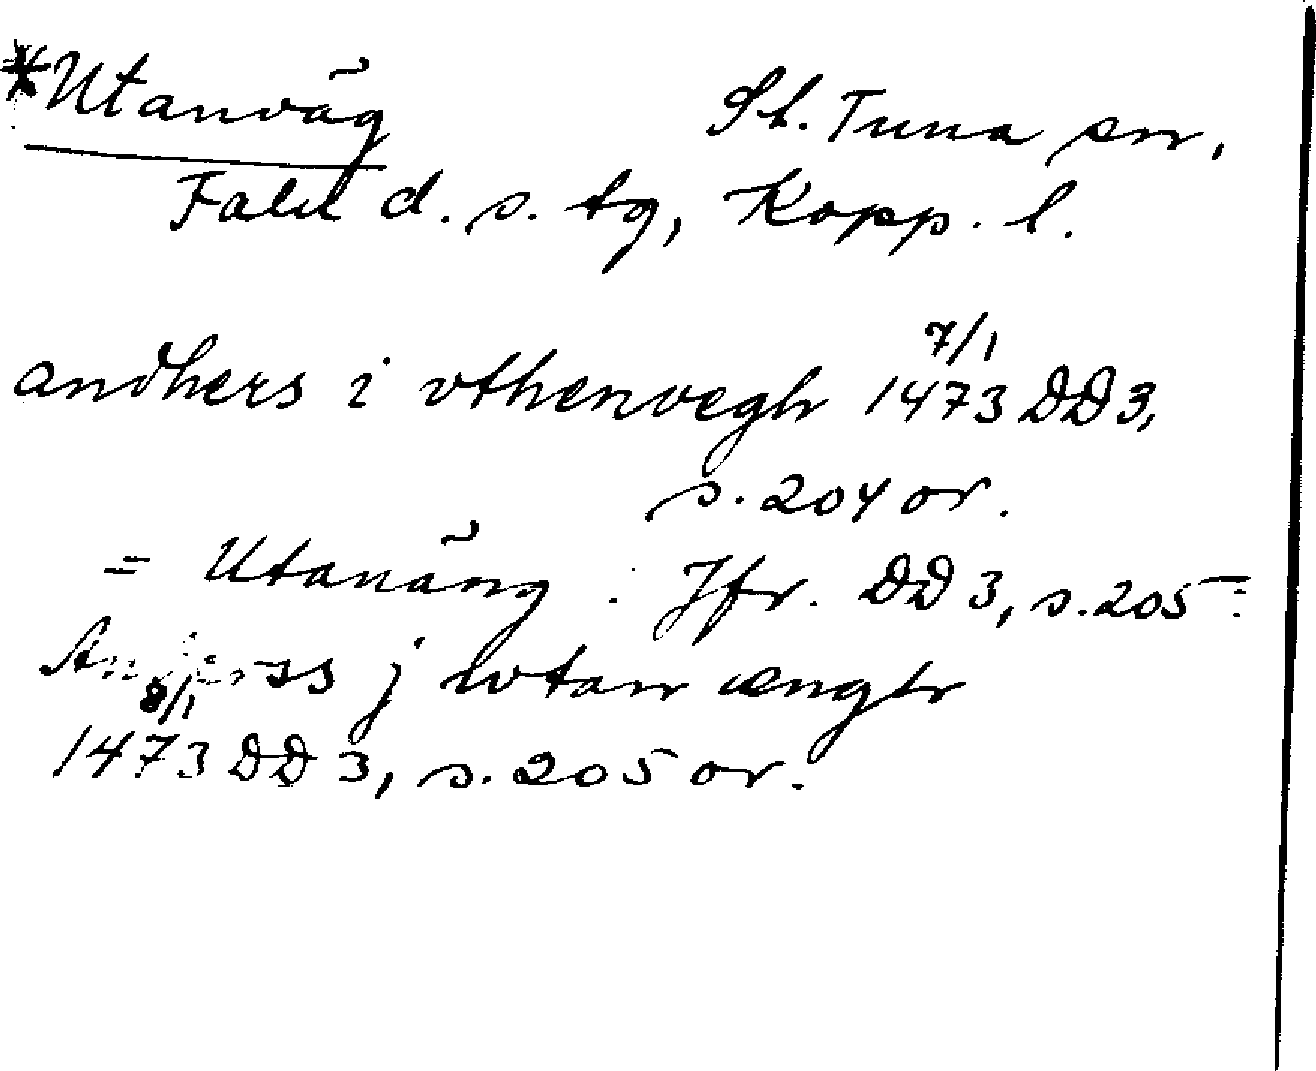 *Utanväg St. Tuna sn,
Falu d. s. tg, Kopp. l.
7/1
andhers i vthenvegh 1473 DD 3,
s. 204 or.
= Utanäng. Jfr. DD 3, s. 205:
Anderss j wtan ængh
8/1
1473 DD 3, s. 205 or.